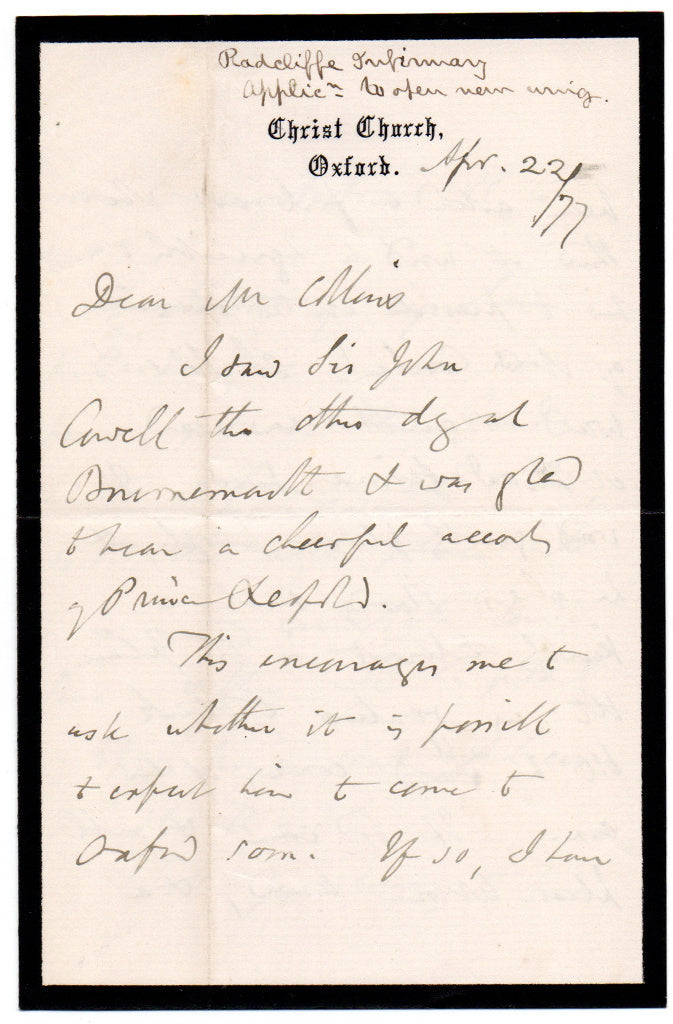 Radcliffe Infirmary
Applicn to open new wing.
Christ Church,
Oxford. Apr. 22
/77
Dear Mr Collins
I saw Sir John
Cowell the other day at
Bournemouth & was glad
to hear a cheerful account
of Prince Leopold.
This encourages me to
ask whether it is possible
to expect him to come to
Oxford soon. If so, I have